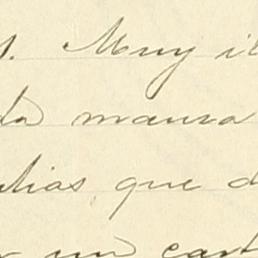 s. Muy il
da mansa
lias, que d
r un cart